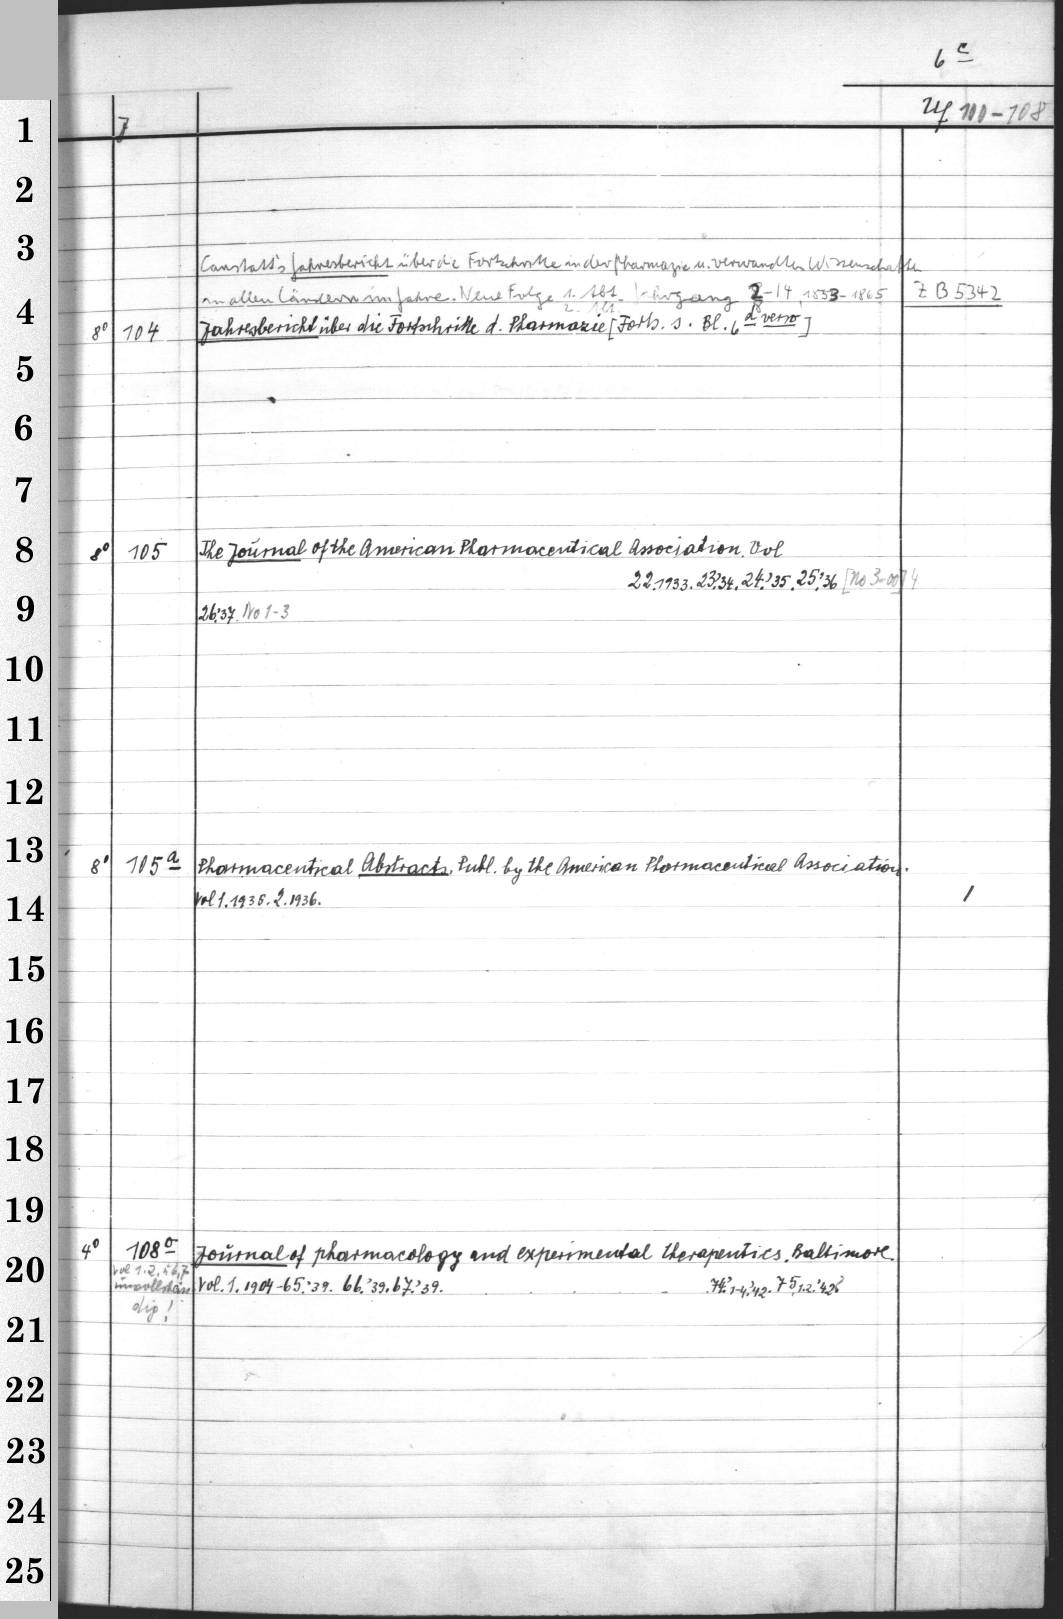 6 c
100-108
1 J
2
3
Canstatt's Jahresbericht über die Fortschritte in der Pharmazie u. verwandten Wissenschaften
in allen Ländern im Jahre. Neue Folge 1. Abt. Jahrgang 2-14, 1853-1865 Z B 5342
4 8° 104 Jahresbericht über die Fortschritte d. Pharmazie [Forts. s. Bl. 6 d verso]
5
6
7
8 8° 105 The Journal of the American Pharmaceutical Association. Vol
22.1933. 23.'34. 24.'35. 25.'36 [No 3-
9 26.'37. No 1-3
10
11
12
13 8° 105a Pharmaceutical Abstracts. Publ. by the American Pharmaceutical Association.
14 Vol 1. 1935. 2. 1936.
15
16
17
18
19
4° 108a Journal of pharmacology and experimental therapeutics. Baltimore.
20 Vol 1.2.
unvollstän Vol. 1. 1904-65.'39. 66.'39. 67.'39. 74.1-4.'42. 75.1.2.'42
dig!
21
22
23
24
25